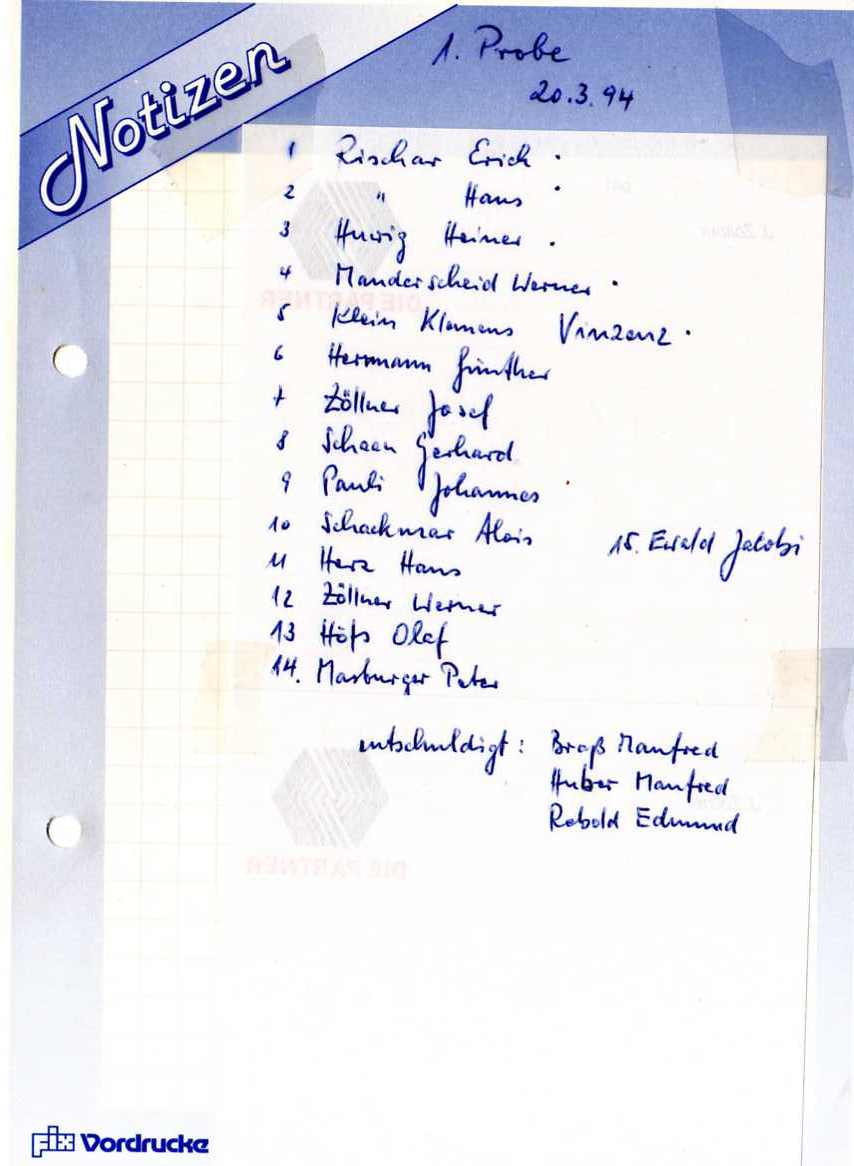 Notizen
1. Probe
20.3.94
1 Rischar Erich
2 " Hans
3 Huwig Heiner
4 Manderscheid Werner
5 Klein Klemens Vinzenz
6 Herrmann Günther
7 Zöllner Josef
8 Schaan Gerhard
9 Pauli Johannes
10 Schackmar Alois
15. Ewald Jakobi
11 Herz Hans
12 Zöllner Werner
13 Höfs Olaf
14. Marburger Peter
entschuldigt: Braß Manfred
Huber Manfred
Rebold Edmund
DIE PARTNER
DIE PARTNER
fix Vordrucke